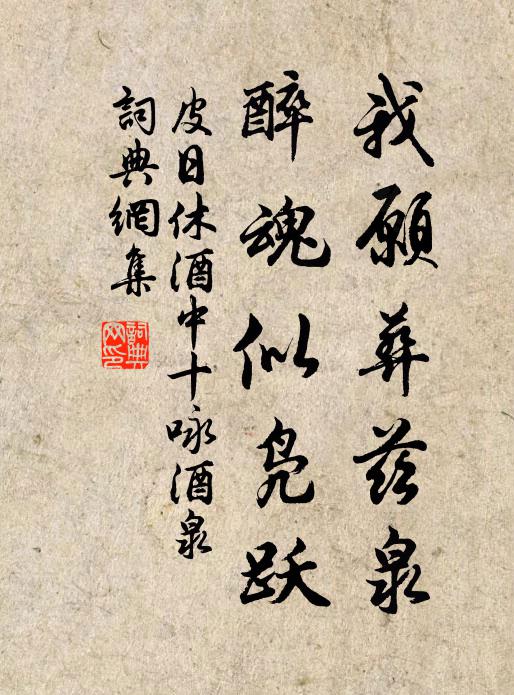 我願葬茲泉
醉魂似鳧躍
皮日休酒中十咏酒泉
詞典網集
詞典網印